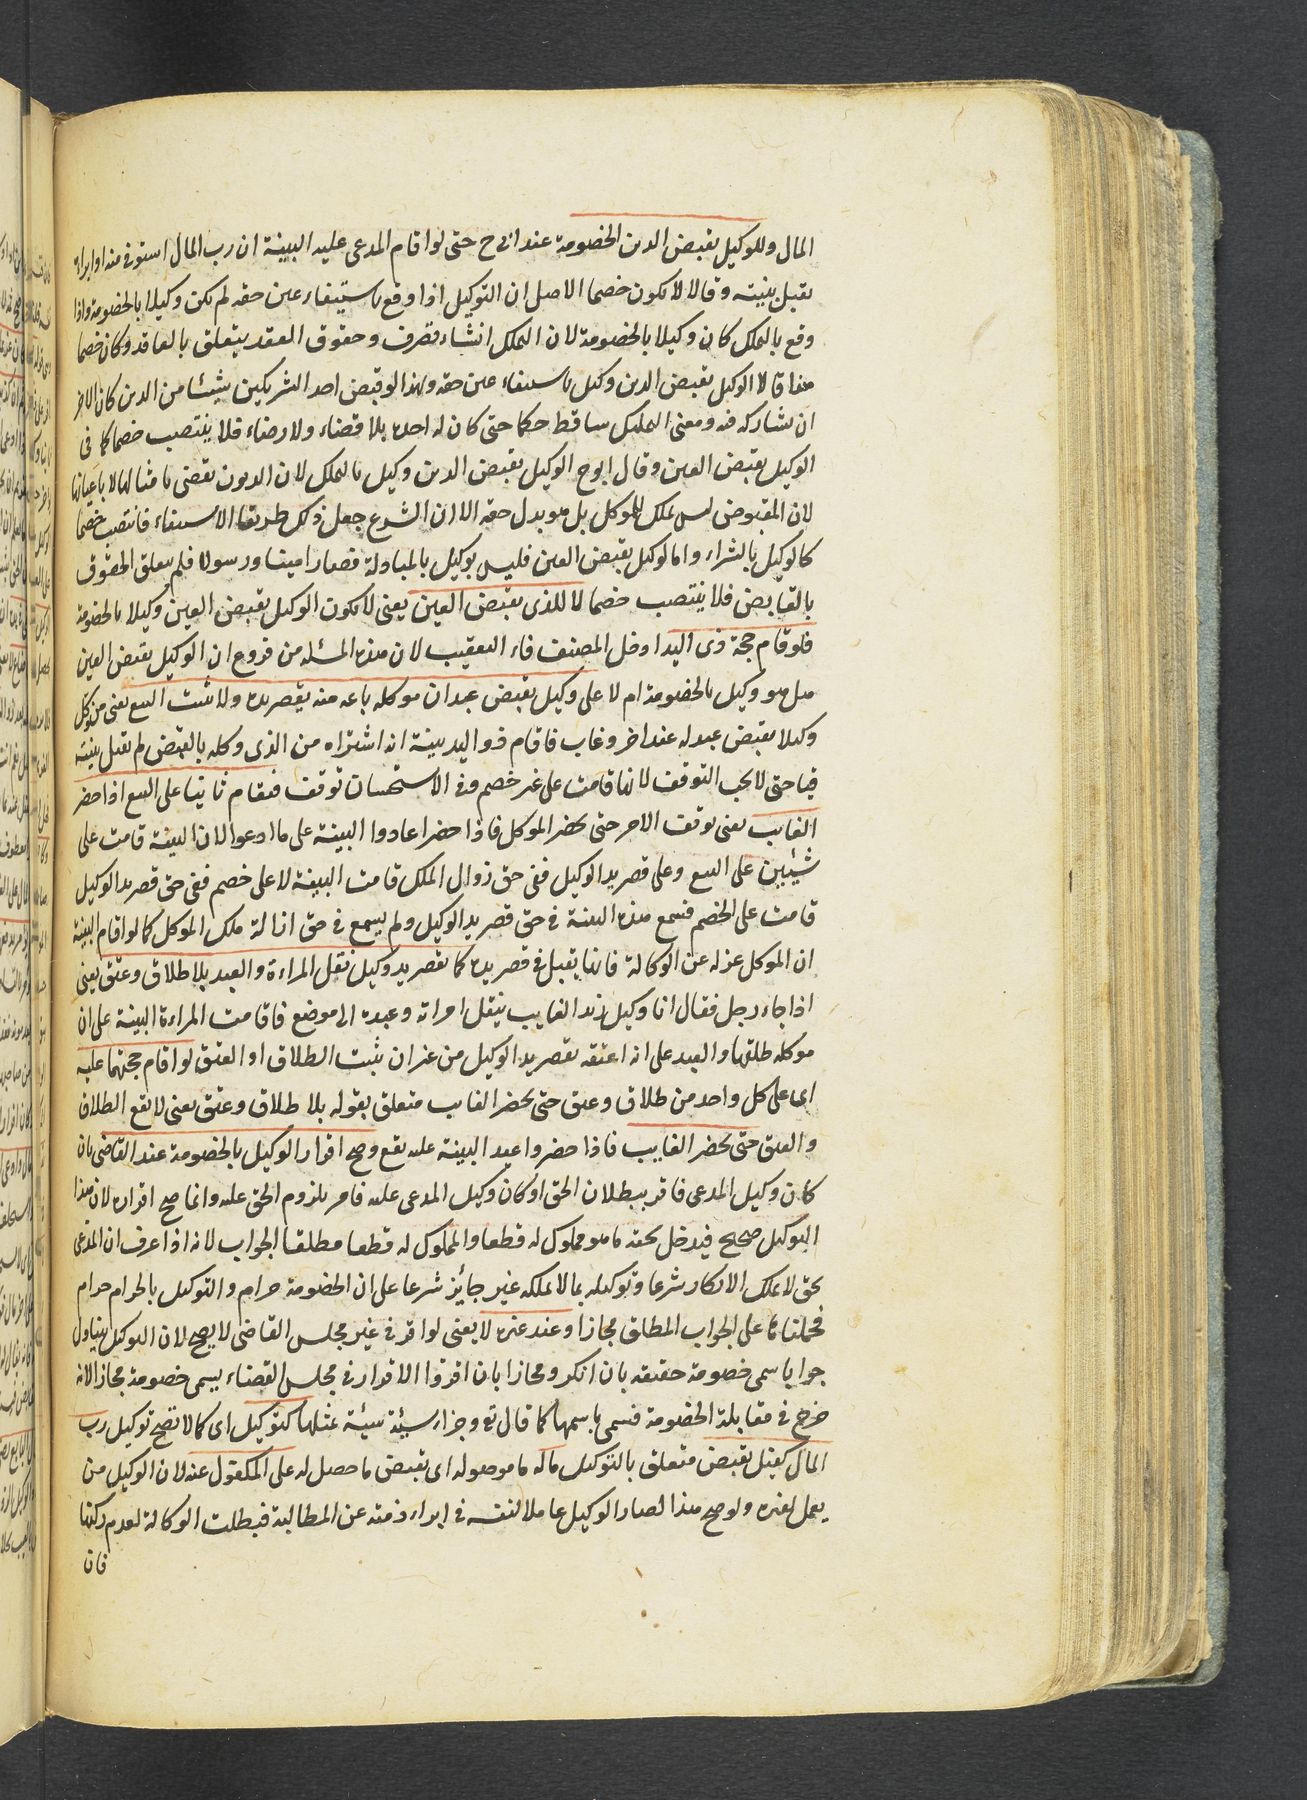 المال وللوكيل بقبض الدين الخصومة عند ابي ح حتى لو اقام المدعى عليه البينة ان رب المال استوفى منه او ابراه
يقبل بينته وقالا لا يكون خصما الاصل ان التوكيل اذا وقع باستيفاء عين حقه لم يكن وكيلا بالخصومة واذا
وقع بالتملك كان وكيلا بالخصومة لان التملك انشاء تصرف وحقوق العقد يتعلق بالعاقد وكان خصما
فيها قالا الوكيل بقبض الدين وكيل باستيفاء عين حقه ولهذا لو قبض احد الشريكين شيئا من الدين كان للاخر
ان يشاركه فيه ومعنى التمليك ساقط حكما حتى كان له اخذه بلا قضاء ولا رضاء فلا ينتصب خصما كما في
الوكيل بقبض العين وقال ابو ح الوكيل بقبض الدين وكيل بالتملك لان الديون تقضى بامثالها لا باعيانها
لان المقبوض ليس بملك للموكل بل هو بدل حقه الا ان الشرع جعل ذلك طريقا الاستيفاء فانتصب خصما
كالوكيل بالشراء واما الوكيل بقبض العين فليس بوكيل بالمبادلة فصار امينا ورسولا فلم يتعلق الحقوق
بالقابض فلا ينتصب خصما لا للذى بقبض العين يعنى لا يكون الوكيل بقبض العين وكيلا بالخصومة
فلو قام حجة ذى اليد ادخل المصنف فاء التعقيب لان هذه المسئلة من فروع ان الوكيل بقبض العين
هل هو وكيل بالخصومة ام لا على وكيل بقبض عبد ان موكله باعه منه يقصر يده ولا يثبت البيع يعنى من وكل
وكيلا بقبض عبد له عند اخر وغاب فاقام ذو اليد بينة انه اشتراه من الذى وكله بالقبض لم تقبل بينته
قياسا حتى لا يجب التوقف لانها قامت على غير خصم وفى الاستحسان توقف فتقام ثانيا على البيع اذا حضر
الغايب يعنى توقف الامر حتى يحضر الموكل فاذا حضر اعادوا البينة على ما ادعوا لان البينة قامت على
شيئين على البيع وعلى قصر يد الوكيل ففى حق زوال الملك قامت البينة لا على خصم ففى حق قصر يد الوكيل
قامت على الخصم فسمع هذه البينة في حق قصر يد الوكيل ولم يسمع في حق ازالة ملك الموكل كما لو اقام البينة
ان الموكل عزله عن الوكالة فانها يقبل في قصر يده كما يقصر يد وكيل نقل المراءة والعبد بلا طلاق وعتق يعنى
اذا جاء رجل فقال انا وكيل زيد الغايب ينقل امراته وعبده الى موضع فاقامت المراءة البينة على ان
موكله طلقها والعبد على انه اعتقه يقصر يد الوكيل من غير ان يثبت الطلاق او العتق لو اقام حجتهما عليه
اى على كل واحد من طلاق وعتق حتى يحضر الغايب متعلق بقوله بلا طلاق وعتق يعنى لا يقع الطلاق
والعتق حتى يحضر الغايب فاذا حضر واعيد البينة عليه يقع وصح اقرار الوكيل بالخصومة عند القاضى بان
كان وكيل المدعى فاقر ببطلان الحق او كان وكيل المدعى عليه فاقر بلزوم الحق عليه وانما صح اقراره لان هذا
التوكيل صحيح فيدخل تحته ما هو مملوك له قطعا والمملوك له قطعا مطلقا الجواب لانه اذا عرف ان المدعى
بحق لا يملك الانكار شرعا وتوكيله بما لا يملكه غير جائز شرعا على ان الخصومة حرام والتوكيل بالحرام حرام
فحملناها على الجواب المطلق مجازا وعند غيره لا يعنى لو اقر في غير مجلس القاضى لا يصح لان التوكيل يتناول
جوابا سمى خصومة حقيقة بان انكر ومجازا بان اقر والاقرار في مجلس القضاء يسمى خصومة مجازا لانه
خرج في مقابلة الخصومة فسمى باسمها كما قال تع وجزاء سيئة سيئة مثلها كتوكيل اى كما لا تصح توكيل رب
المال كفيل بقبض متعلق بالتوكيل ماله ما موصوله اى بقبض ما حصل له على المكفول عنه لان الوكيل من
يعمل لغيره ولو صح هذا لصار الوكيل عاملا لنفسه في ابراء ذمته عن المطالبة فبطلت الوكالة لعدم ركنها
فان